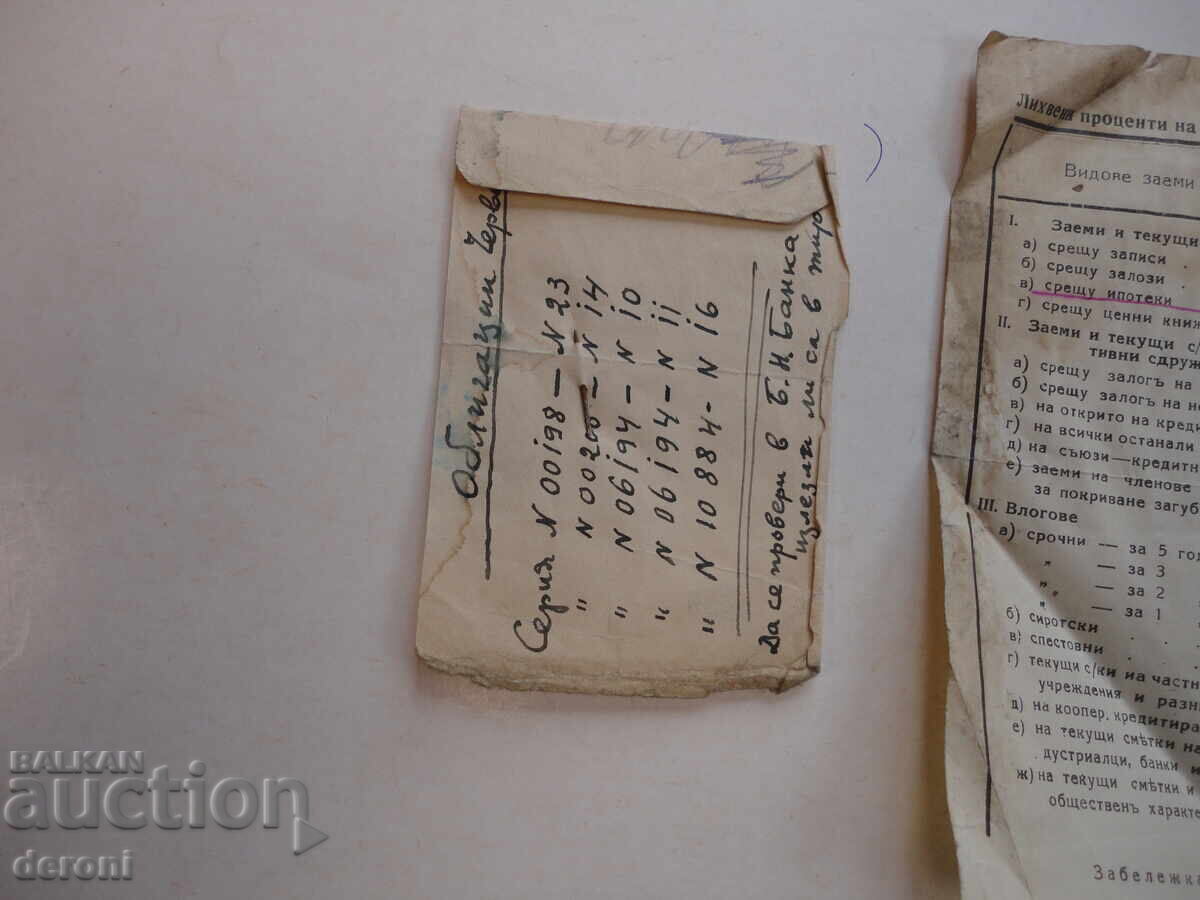 Облигации
Серия N 00198 — N 23
" N 00200 — N 14
" N 06194 — N 10
" N 06194 — N 11
" N 10884 — N 16
Да се провери в Б. Н. Банка
излезли ли са в
Лихвени проценти на
Видове заеми
I. Заеми и текущи
а) срещу записи .
б) срещу залози .
в) срещу ипотеки
г) срещу ценни книж
II. Заеми и текущи с/
тивни сдруж
а) срещу залогъ на
б) срещу залогъ на не
в) на открито на креди
г) на всички останали
д) на съюзи — кредитн
е) заеми на членове
за покриване загуб
III. Влогове
а) срочни — за 5 год
" — за 3
" — за 2
" — за 1 "
б) сиротски . .
в) спестовни . .
г) текущи с/ки иа частн
учреждения и разни
д) на коопер. кредитира
е) на текущи смѣтки на
дустриалци, банки и
ж) на текущи смѣтки и
общественъ характе
Забележка
BALKAN
auction
deroni